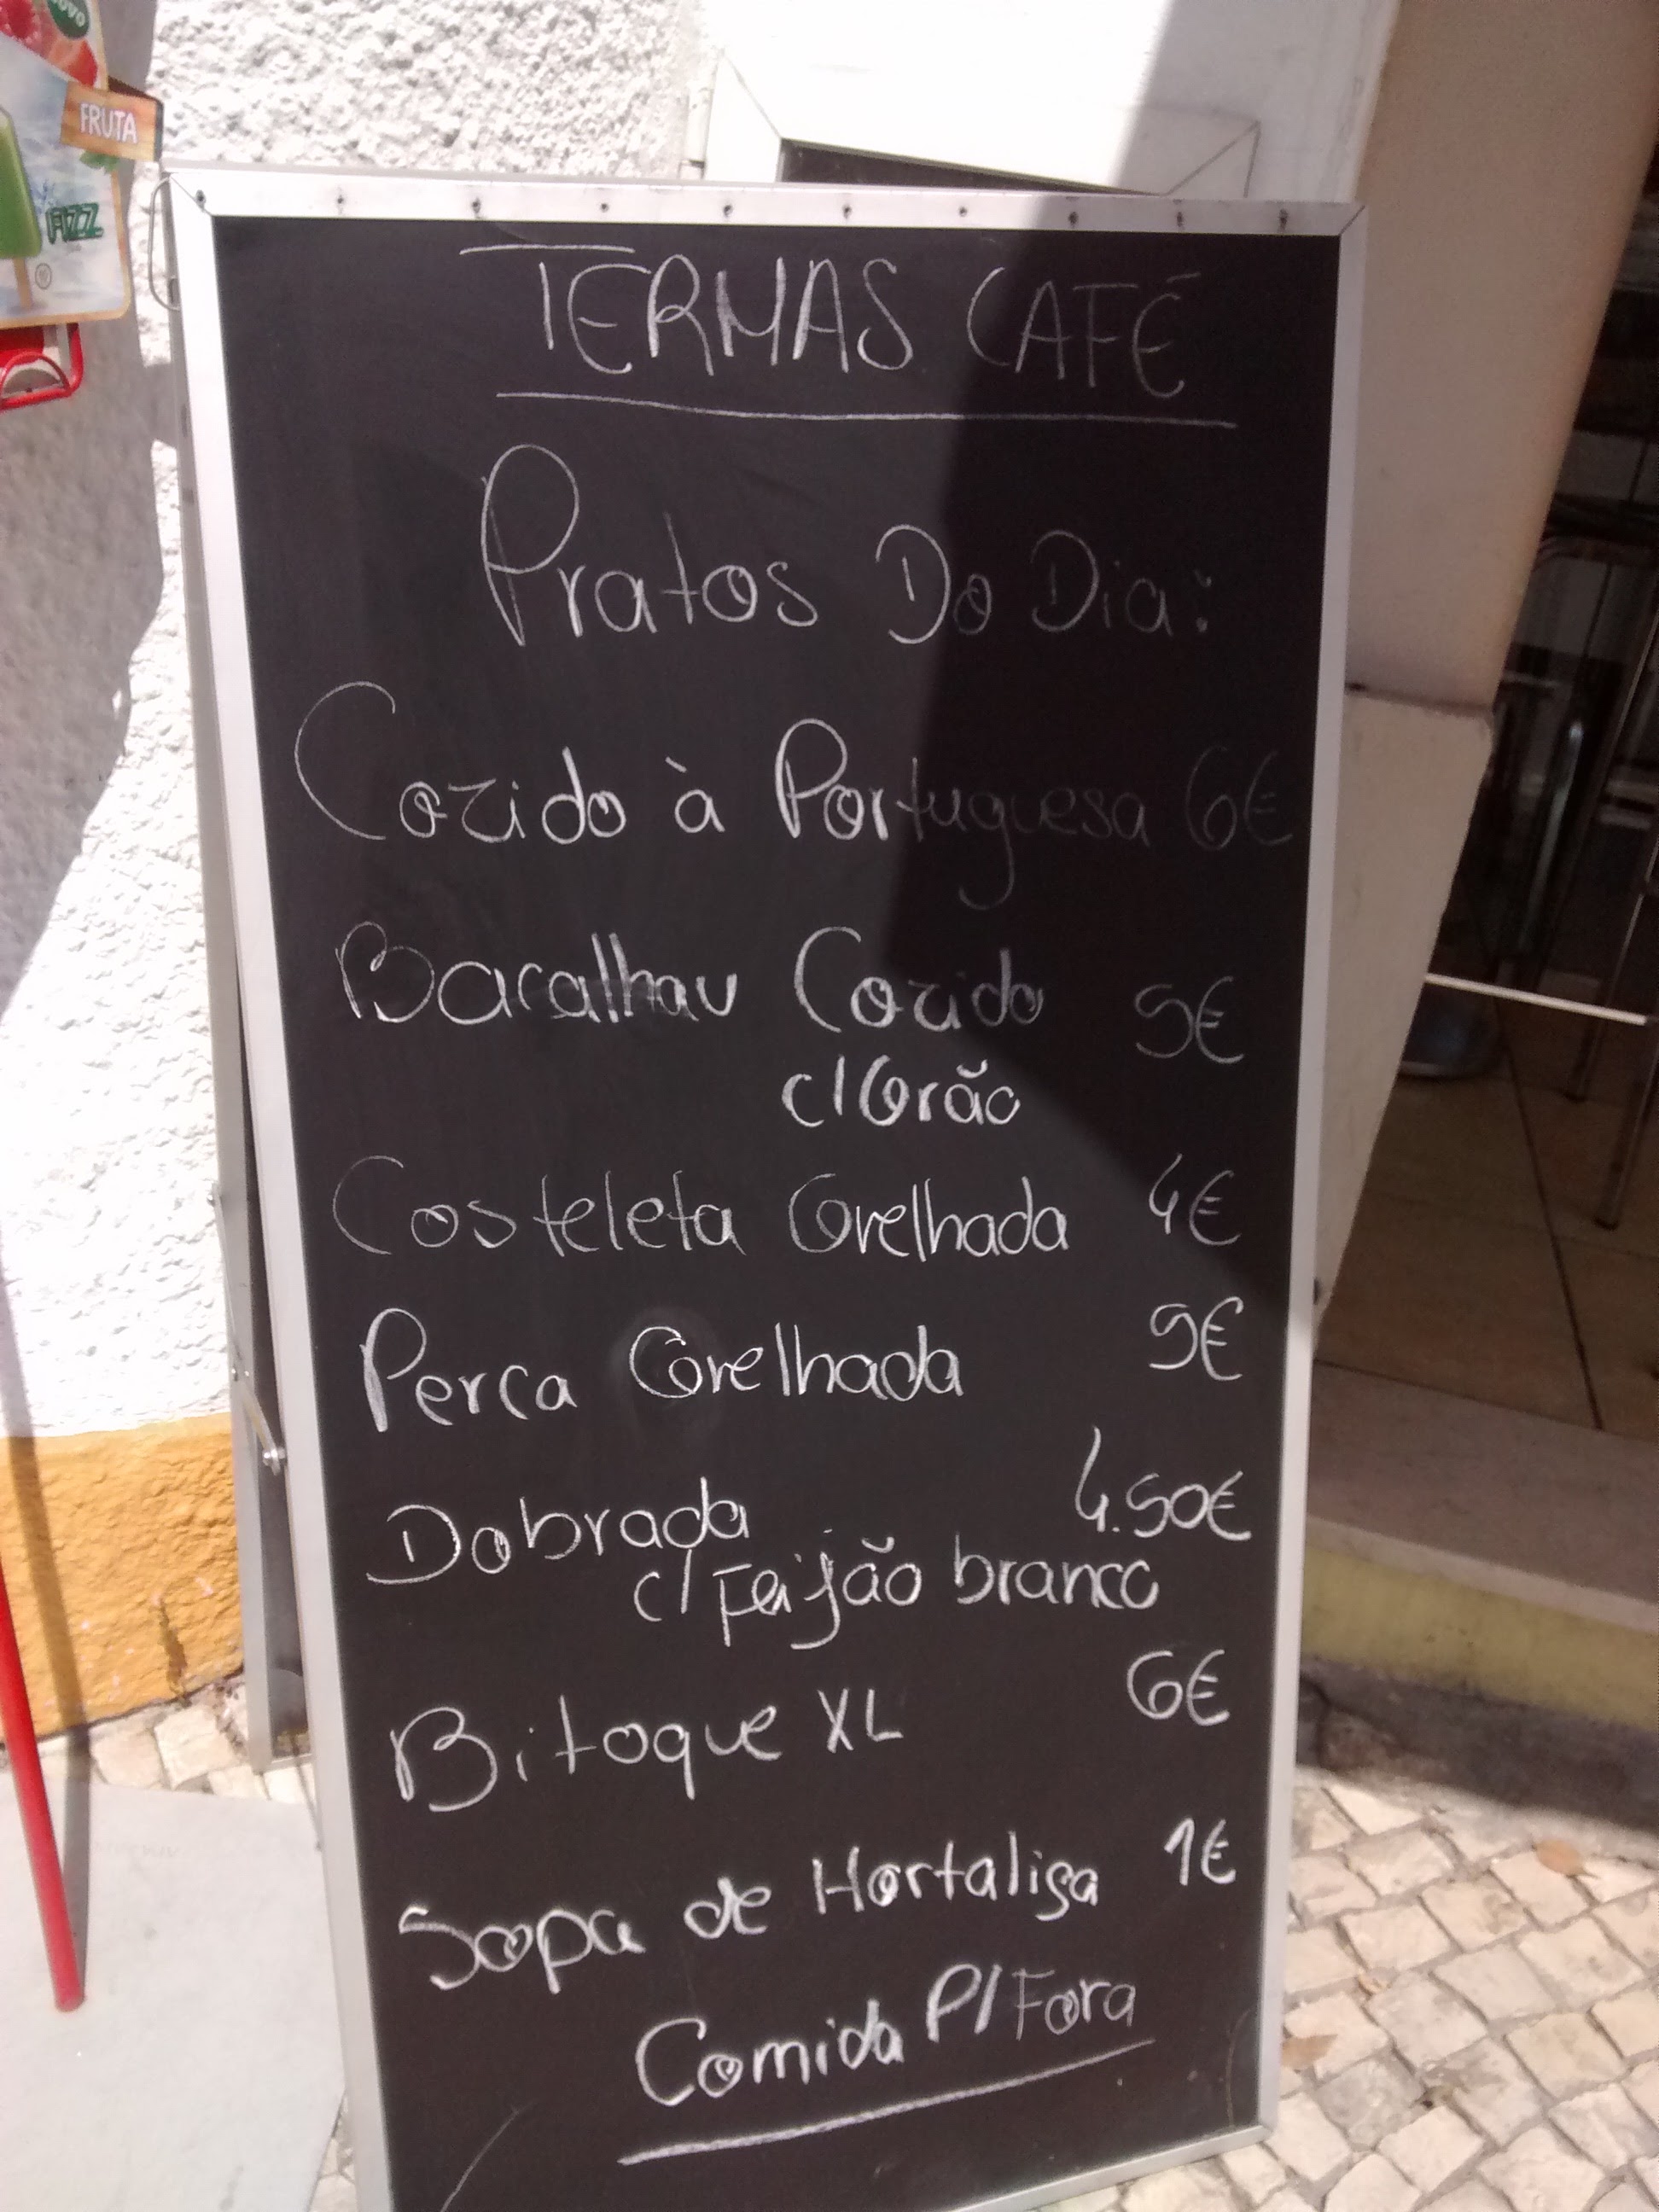 FRUTA
FIZZ
TERMAS CAFÉ
Pratos Do Dia:
Cozido à Portuguesa 6€
Bacalhau Cozido 5€
c/Grão
Costeleta Grelhada 4€
Perca Grelhada 5€
Dobrada 4.50€
c/Feijão branco
Bitoque XL 6€
Sopa de Hortaliça 1€
Comida P/Fora